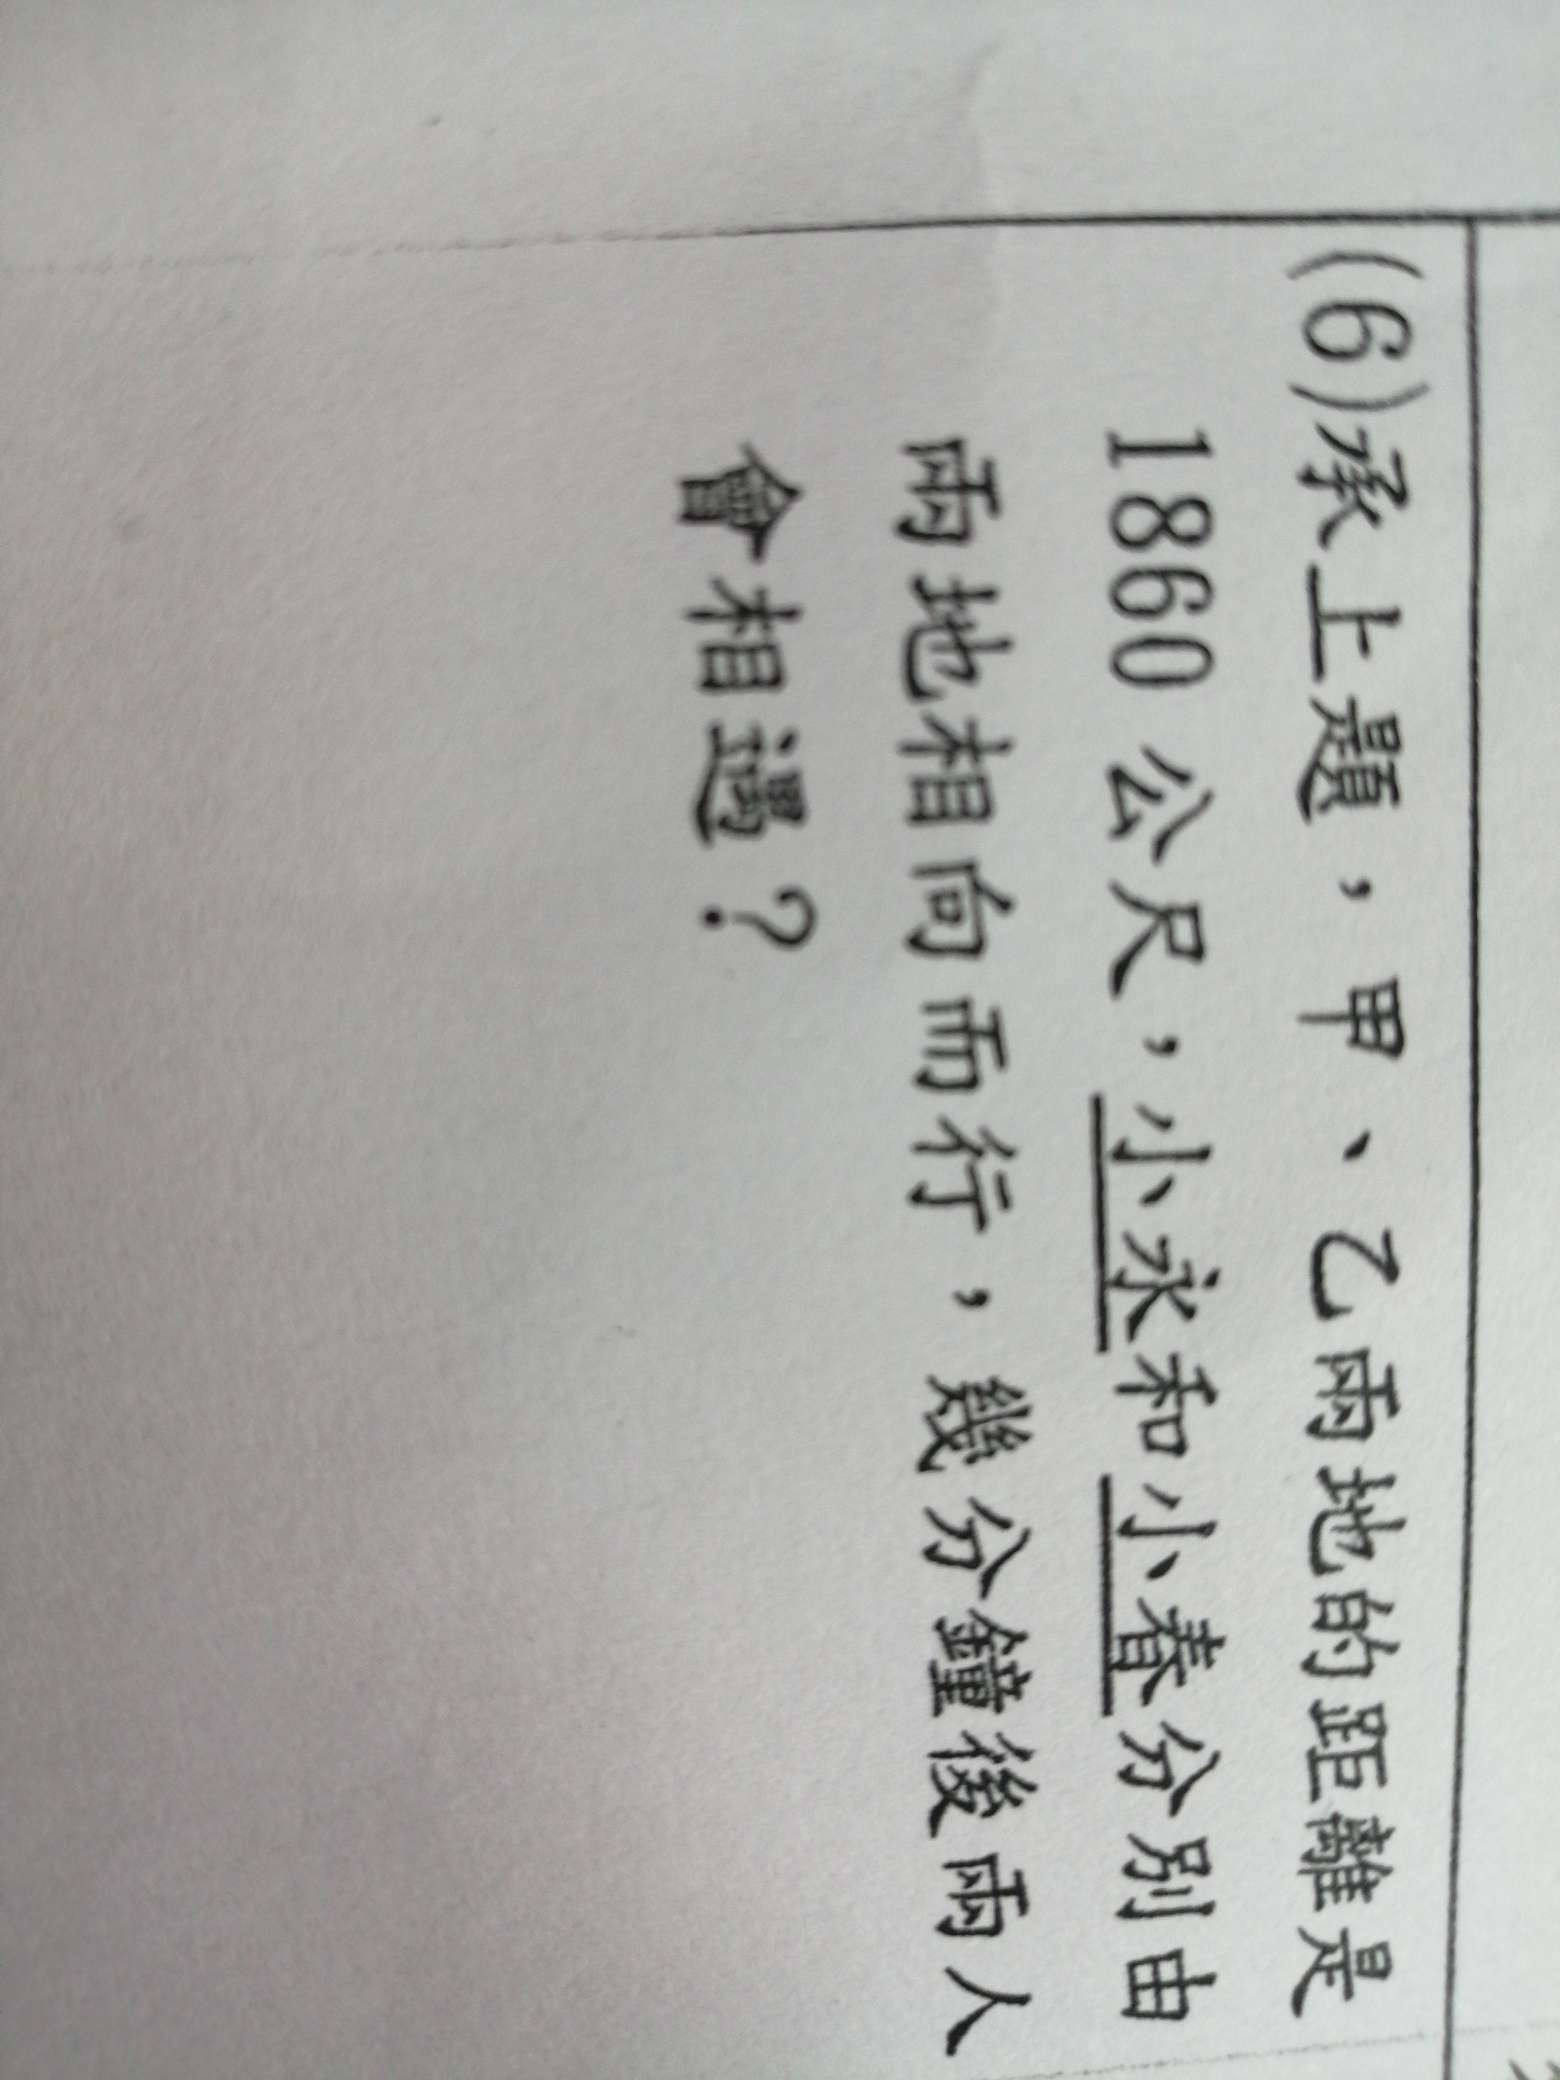 (6)承上題，甲、乙兩地的距離是
1860 公尺，小永和小春分別由
兩地相向而行，幾分鐘後兩人
會相遇？